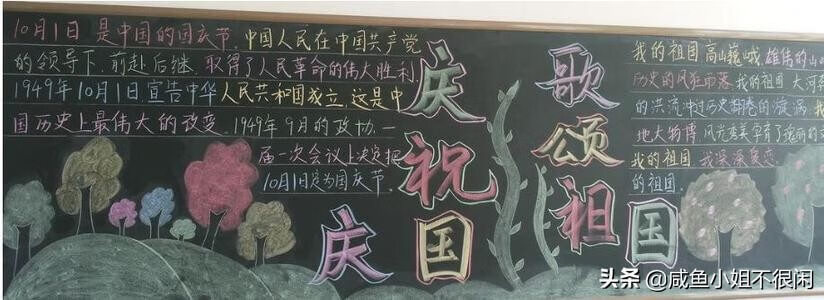 10月1日是中国的国庆节.中国人民在中国共产党
的领导下,前赴后继,取得了人民革命的伟大胜利.
1949年10月1日,宣告中华人民共和国成立,这是中
国历史上最伟大的改变.1949年9月的政协一
届一次会议上决定把
10月1日定为国庆节.
庆祝国庆
歌颂祖国
我的祖国高山巍峨,雄伟的山
历史的风狂雨落,我的祖国大河
的洪流冲过历史翻卷的漩涡,我
地大物博,风光秀美孕育了瑰丽的
我的祖国,我深深爱恋
的祖国.
头条 @咸鱼小姐不很闲